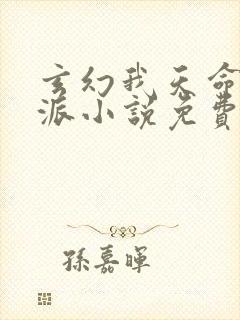 玄幻我天命
派小説免費
孫嘉暉